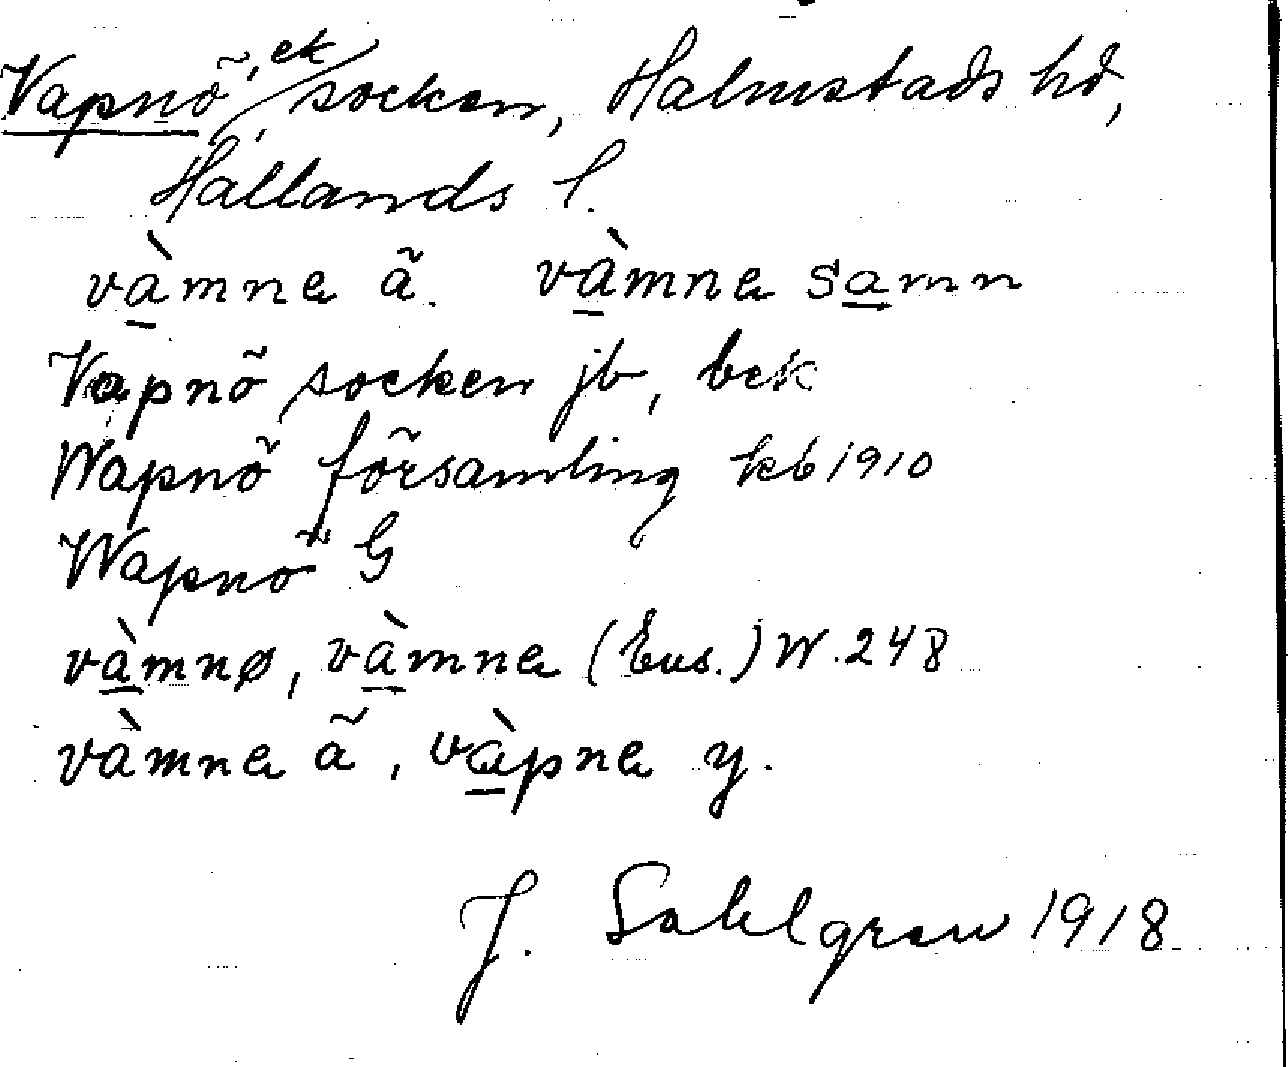 Vapnö, ek socken, Halmstads hd,
Hallands l.
vàmnɐ ã. vàmnɐ samn
Vapnö socken jb, bek
Wapnö församling kb 1910
Wapnö G
vàmnø, vàmnɐ (Eus.) W. 248
vàmnɐ ã, vàpnɐ y.
J. Sahlgren 1918